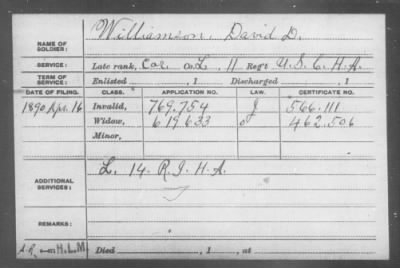 NAME OF SOLDIER: Williamson, David D.
SERVICE: Late rank, Cor. Co. L, 11 Reg't U.S.C.H.A.
TERM OF SERVICE: Enlisted , 1 Discharged , 1
DATE OF FILING. CLASS. APPLICATION NO. LAW. CERTIFICATE NO.
1890 Apr. 16 Invalid, 769.754 J 566.111
Widow, 619633 462.506
Minor,
ADDITIONAL SERVICES: L. 14. R.I.H.A.
REMARKS:
H.L.M. Died , 1 , at